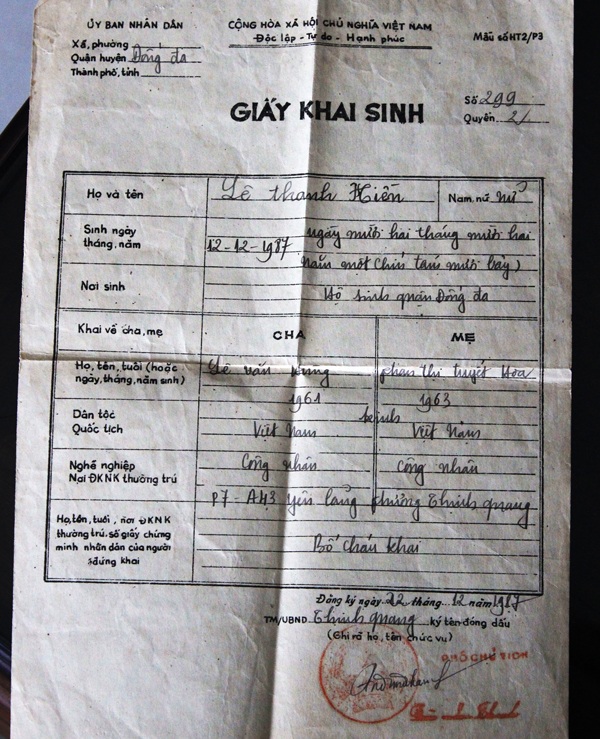 ỦY BAN NHÂN DÂN
Xã, phường
Quận huyện Đống đa
Thành phố, tỉnh
CỘNG HÒA XÃ HỘI CHỦ NGHĨA VIỆT NAM
Độc lập - Tự do - Hạnh phúc
Mẫu số HT2/P3
GIẤY KHAI SINH
Số 299
Quyển 2/
Họ và tên
Lê thanh Hiền
Nam, nữ nữ
Sinh ngày
tháng, năm
12-12-1987 ngày mười hai tháng mười hai
năm một chín tám mươi bảy)
Nơi sinh
Hộ sinh quận Đống đa
Khai về cha, mẹ
CHA
MẸ
Họ, tên, tuổi (hoặc
ngày, tháng, năm sinh)
Lê văn
phan thị tuyết Hoa
1961
1963
Dân tộc
Quốc tịch
kinh
Việt Nam
Việt Nam
Nghề nghiệp
Nơi ĐKNK thường trú
Công nhân
công nhân
P7 - A43 yên lãng phường Thịnh quang
Họ, tên, tuổi, nơi ĐKNK
thường trú, số giấy chứng
minh nhân dân của người
đứng khai
Bố cháu khai
Đăng ký ngày 22 tháng 12 năm 1987
TM/UBND Thịnh quang ký tên đóng dấu
(Ghi rõ họ, tên chức vụ)
PHÓ CHỦ TỊCH